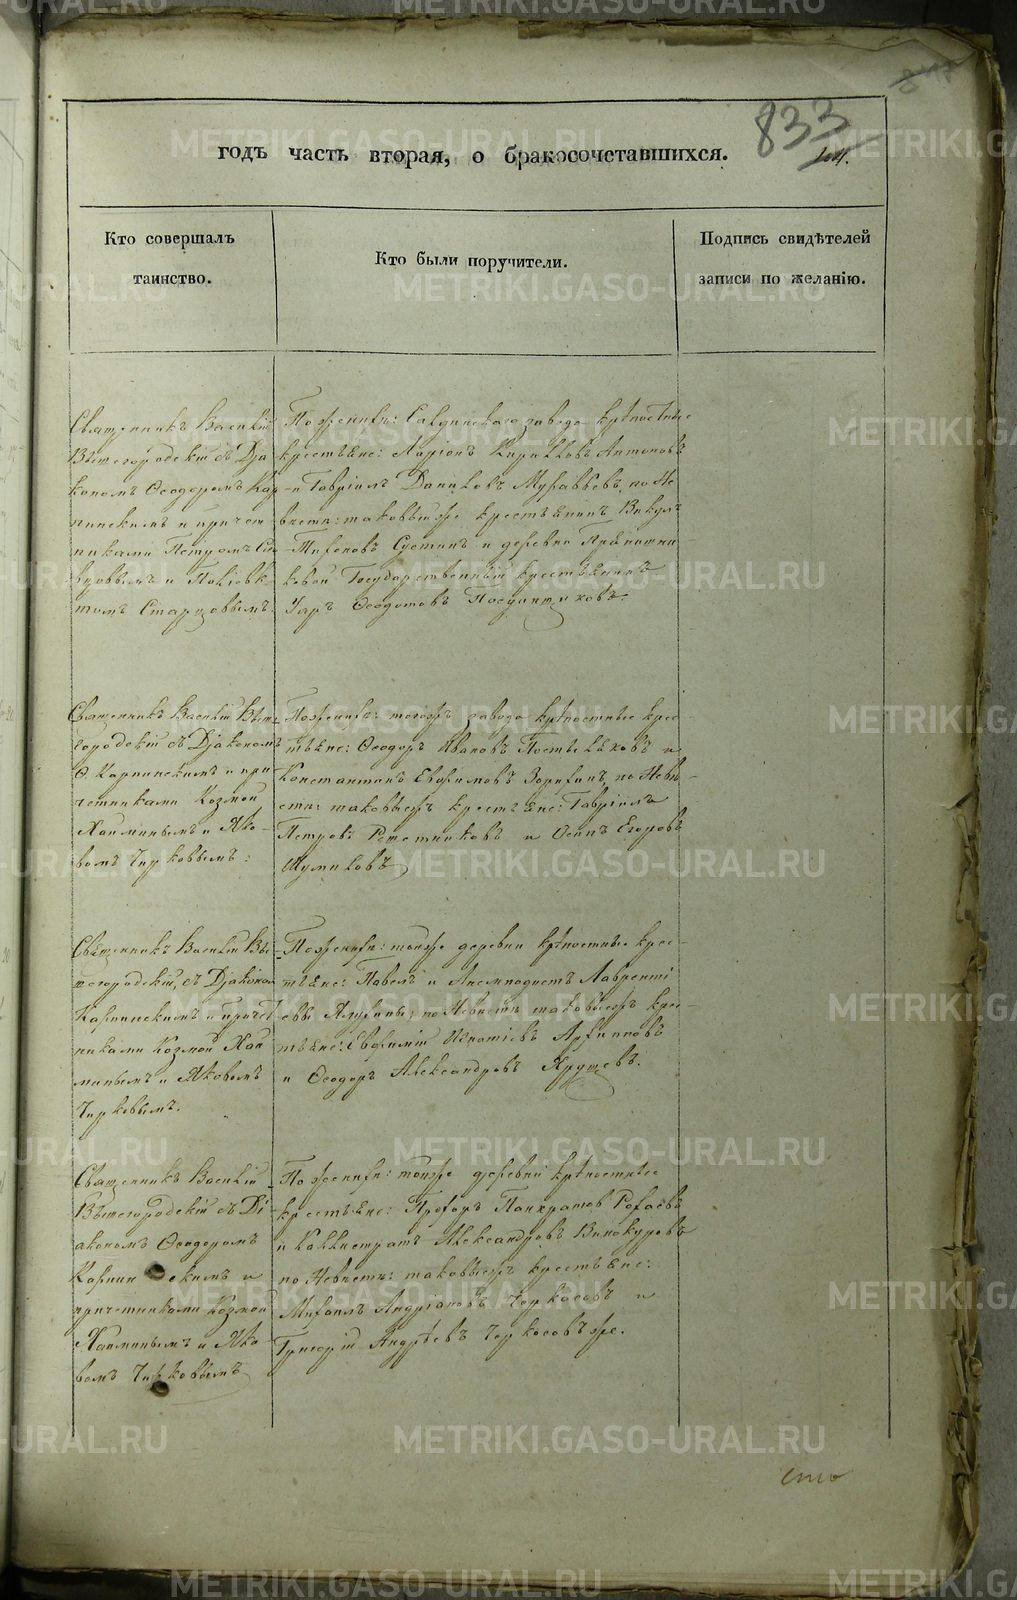 833
годъ часть вторая, о бракосочетавшихся.
Кто совершалъ
таинство.
Кто были поручители.
Подпись свидѣтелей
записи по желанію.
Священникъ Василій
Вышегородскій съ Діа
кономъ Ѳеодоромъ Кар
пинскимъ и причет
никами Петромъ
и
томъ Старцовымъ.
По женихѣ: завода крѣпостные
крестьяне: Ларіонъ Кириловъ Антоновъ
и Гавріилъ Даниловъ Муравьевъ, по Не
вѣстѣ: таковыеже крестьянинъ Викулъ
и деревни
Государственный крестьянинъ
Ѳеодотовъ
Священникъ Василій Выше
городскій съ Діакономъ
Ѳ Карпинскимъ и при
четниками Козмою
Хайминымъ и Яко
вомъ Чирковымъ:
По женихѣ: тогоже завода крѣпостные крес
тьяне: Ѳеодоръ Ивановъ и
Константинъ Евфимовъ Зорихинъ, по Невѣ
стѣ: таковыежъ крестьяне: Гавріилъ
Петровъ Решетниковъ и Осипъ Егоровъ
Шумиловъ
Священникъ Василій Вы
шегородскій, съ Діакономъ
Карпинскимъ и причет
никами Козмой Хай
минымъ и Яковомъ
Чирковымъ.
По женихѣ: тойже деревни крѣпостные крес
тьяне: Павелъ и Лавренті
евы по Невѣстѣ таковыежъ крес
тьяне: Евфимій Игнатіевъ Архиповъ
и Ѳеодоръ Александровъ
Священникъ Василій
Вышегородскій съ Ді
акономъ Ѳеодоромъ
Карпинскимъ и
причетниками Козмой
Хайминымъ и Яко
вомъ Чирковымъ
По женихѣ: тойже деревни крѣпостные
крестьяне: Панкратов
и Каллистратъ Александровъ Винокуровъ
по Невѣстѣ: таковыежъ крестьяне:
Михаилъ Андріановъ Черкасовъ и
Григорій Андрѣевъ Черкасовъже.
METRIKI.GASO-URAL.RU